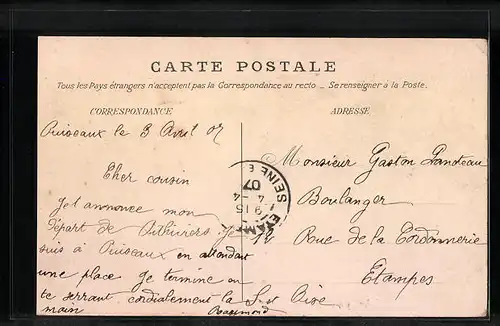 CARTE POSTALE
Tous les Pays étrangers n'acceptent pas la Correspondance au recto _ Se renseigner à la Poste.
CORRESPONDANCE
ADRESSE
Puiseaux le 3 Avril 07
Cher cousin
Je t annonce mon
départ de Pithiviers je
suis à Puiseaux en attendant
une place Je termine en
te serrant cordialement la
main
Raymond
Monsieur Gaston
Boulanger
Rue de la Cordonnerie
Etampes
S et Oise
ETAM
SEINE
9 15
4
07